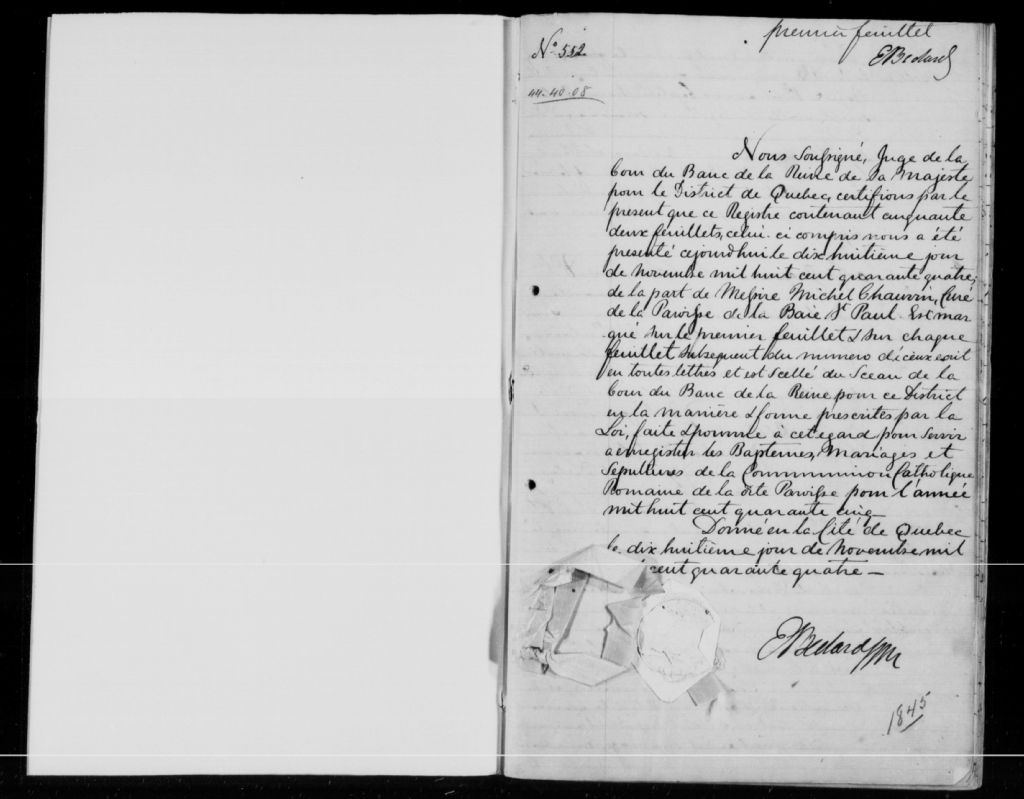 premier feuillet
EBedard
No 552
44-40-08
Nous Soussigné, Juge de la
Cour du Banc de la Reine de Sa Majesté
pour le District de Quebec, certifions par le
present que ce Registre contenant cinquante
deux feuillets, celui-ci compris nous a été
presenté cejourdhui le dix huitième jour
de Novembre mil huit cent quarante quatre,
de la part de Messire Michel Chauvin, Curé
de la Paroisse de la Baie St Paul. Est mar
qué sur le premier feuillet & sur chaque
feuillet subsequent du numero d'iceux ecrit
en toutes lettres et est scellé du Sceau de la
Cour du Banc de la Reine pour ce District
en la manière & forme prescrites par la
Loi, faite & pourvue à cet egard pour servir
a enregistrer les Baptemes, Mariages et
Sepultures de la Communion Catholique
Romaine de la dite Paroisse pour l'année
mil huit cent quarante cinq
Donné en la Cité de Quebec
le dix huitième jour de Novembre mil
cent quarante quatre —
EBedard
1845